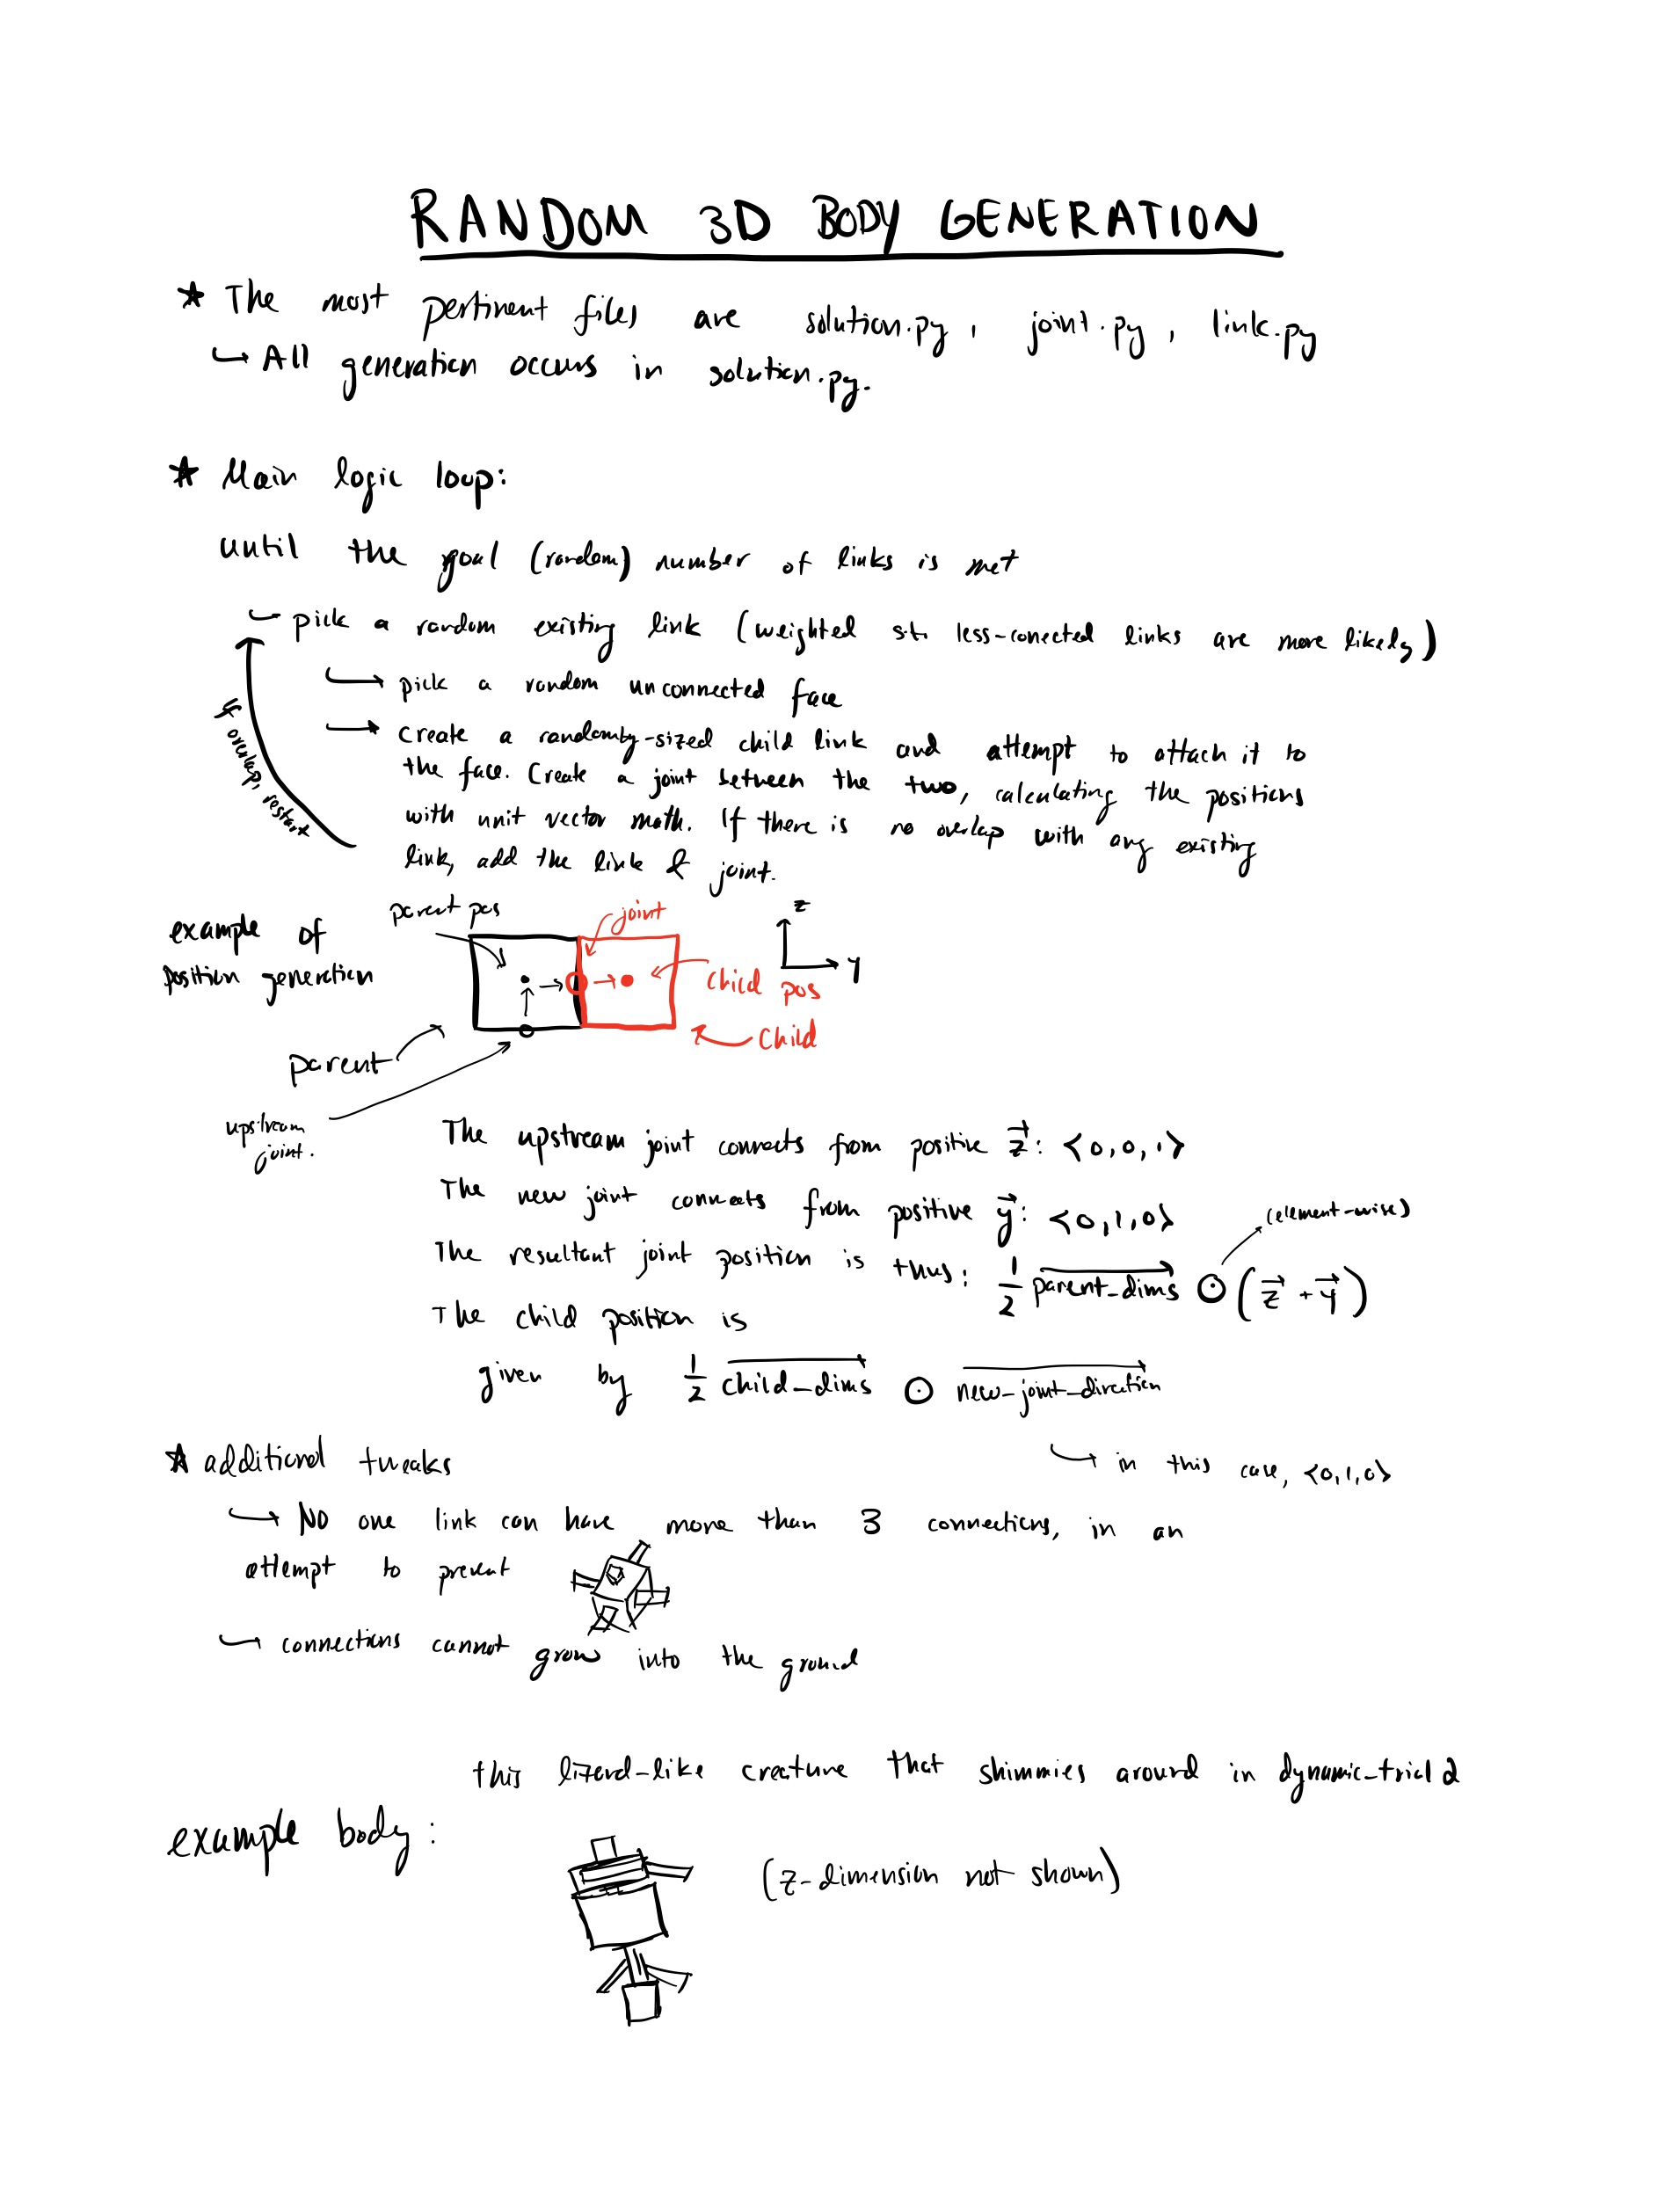 RANDOM 3D BODY GENERATION
★ The most pertinent files are solution.py, joint.py, link.py
↳ All generation occurs in solution.py.
★ Main logic loop:
until the goal (random) number of links is met
↳ pick a random existing link (weighted s.t. less-conected links are more likely)
↳ pick a random unconnected face
↳ create a randomly-sized child link and attempt to attach it to
the face. Create a joint between the two, calculating the positions
with unit vector math. If there is no overlap with any existing
link, add the link & joint.
if overlap, restart
example of
position generation
parent pos
joint
z
y
child pos
child
parent
upstream
joint.
The upstream joint connects from positive z⃗: <0,0,1>
The new joint connects from positive y⃗: <0,1,0>
(element-wise)
The resultant joint position is thus: 1/2 parent_dims ⊙ (z⃗ + y⃗)
The child position is
given by 1/2 child_dims ⊙ new_joint_direction
↳ in this case, <0,1,0>
★ additional tweaks
↳ No one link can have more than 3 connections, in an
attempt to prevent
↳ connections cannot grow into the ground
this lizard-like creature that shimmies around in dynamic_trial 2
example body:
(z-dimension not shown)